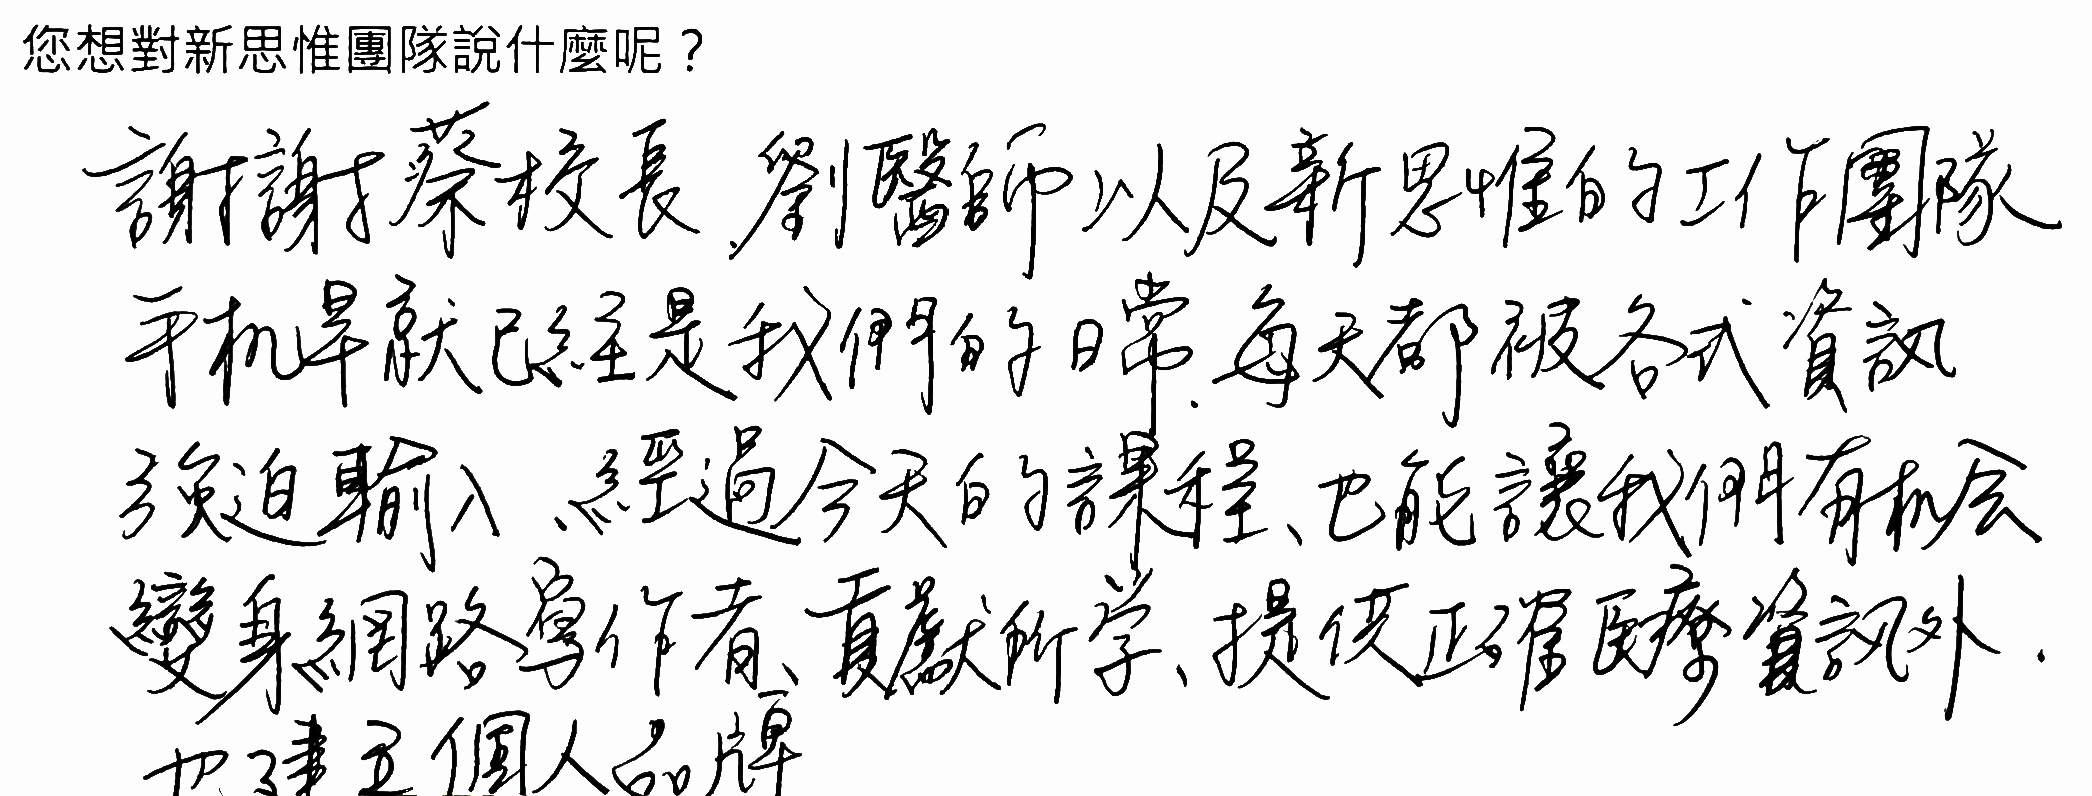 您想對新思惟團隊說什麼呢？
謝謝蔡校長、劉醫師以及新思惟的工作團隊
手机早就已經是我們的日常，每天都被各式資訊
強迫輸入、經過今天的課程、也能讓我們有机会
變身網路寫作者、貢獻所学、提供正確医療資訊外，
也建立個人品牌